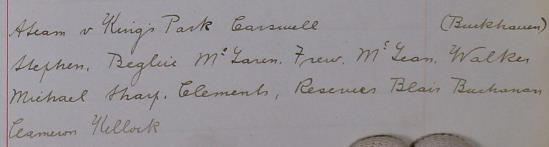 A team v King's Park Carswell (Buckhaven)
Stephen, Begbie McLaren, Frew, McLean, Walker
Michael Sharp, Clements, Reserves Blair Buchanan
Cameron Kellock